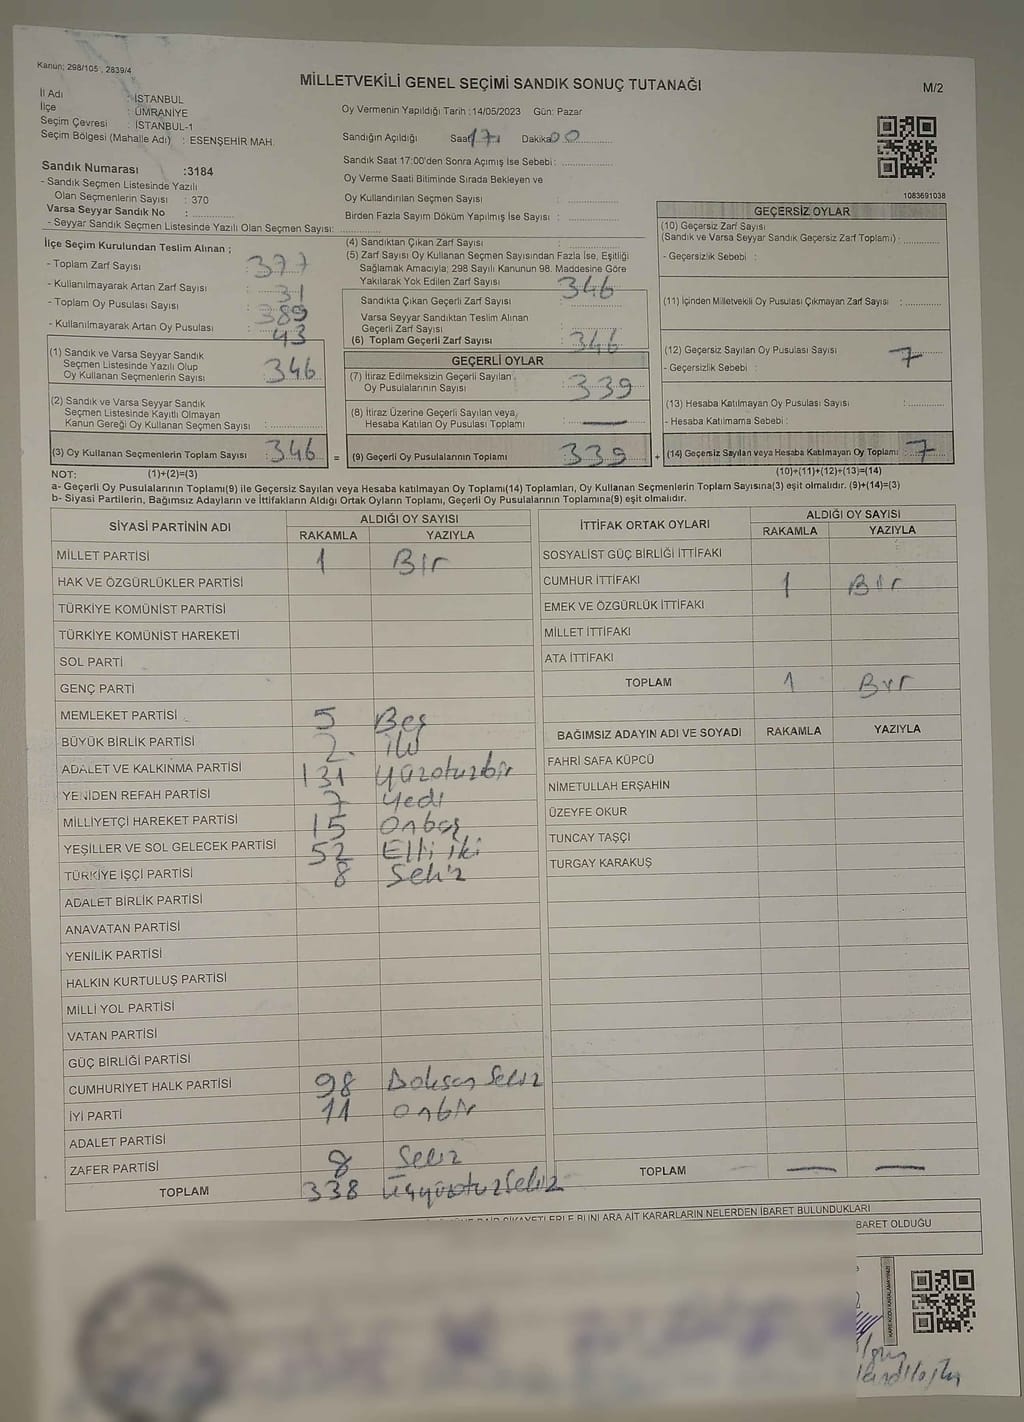 Kanun; 298/105 , 2839/4
MİLLETVEKİLİ GENEL SEÇİMİ SANDIK SONUÇ TUTANAĞI
M/2
İl Adı : İSTANBUL
İlçe : ÜMRANİYE
Seçim Çevresi : İSTANBUL-1
Seçim Bölgesi (Mahalle Adı) : ESENŞEHİR MAH.
Oy Vermenin Yapıldığı Tarih :14/05/2023 Gün: Pazar
Sandığın Açıldığı Saat 17 Dakika 00
Sandık Saat 17:00'den Sonra Açımış İse Sebebi :
Oy Verme Saati Bitiminde Sırada Bekleyen ve
Oy Kullandırılan Seçmen Sayısı :
Birden Fazla Sayım Döküm Yapılmış İse Sayısı :
1083691038
Sandık Numarası :3184
- Sandık Seçmen Listesinde Yazılı
Olan Seçmenlerin Sayısı : 370
Varsa Seyyar Sandık No :
- Seyyar Sandık Seçmen Listesinde Yazılı Olan Seçmen Sayısı:
İlçe Seçim Kurulundan Teslim Alınan ;
- Toplam Zarf Sayısı : 377
- Kullanılmayarak Artan Zarf Sayısı : 31
- Toplam Oy Pusulası Sayısı : 389
- Kullanılmayarak Artan Oy Pusulası : 43
(1) Sandık ve Varsa Seyyar Sandık
Seçmen Listesinde Yazılı Olup
Oy Kullanan Seçmenlerin Sayısı : 346
(2) Sandık ve Varsa Seyyar Sandık
Seçmen Listesinde Kayıtlı Olmayan
Kanun Gereği Oy Kullanan Seçmen Sayısı :
(3) Oy Kullanan Seçmenlerin Toplam Sayısı : 346 =
(4) Sandıktan Çıkan Zarf Sayısı :
(5) Zarf Sayısı Oy Kullanan Seçmen Sayısından Fazla İse, Eşitliği
Sağlamak Amacıyla; 298 Sayılı Kanunun 98. Maddesine Göre
Yakılarak Yok Edilen Zarf Sayısı :
Sandıkta Çıkan Geçerli Zarf Sayısı : 346
Varsa Seyyar Sandıktan Teslim Alınan
Geçerli Zarf Sayısı :
(6) Toplam Geçerli Zarf Sayısı : 346
GEÇERLİ OYLAR
(7) İtiraz Edilmeksizin Geçerli Sayılan
Oy Pusulalarının Sayısı : 339
(8) İtiraz Üzerine Geçerli Sayılan veya
Hesaba Katılan Oy Pusulası Toplamı : —
(9) Geçerli Oy Pusulalarının Toplamı : 339 +
GEÇERSİZ OYLAR
(10) Geçersiz Zarf Sayısı
(Sandık ve Varsa Seyyar Sandık Geçersiz Zarf Toplamı) :
- Geçersizlik Sebebi :
(11) İçinden Milletvekili Oy Pusulası Çıkmayan Zarf Sayısı :
(12) Geçersiz Sayılan Oy Pusulası Sayısı : 7
- Geçersizlik Sebebi :
(13) Hesaba Katılmayan Oy Pusulası Sayısı :
- Hesaba Katılmama Sebebi :
(14) Geçersiz Sayılan veya Hesaba Katılmayan Oy Toplamı : 7
NOT: (1)+(2)=(3) (10)+(11)+(12)+(13)=(14)
a- Geçerli Oy Pusulalarının Toplamı(9) ile Geçersiz Sayılan veya Hesaba katılmayan Oy Toplamı(14) Toplamları, Oy Kullanan Seçmenlerin Toplam Sayısına(3) eşit olmalıdır. (9)+(14)=(3)
b- Siyasi Partilerin, Bağımsız Adayların ve İttifakların Aldığı Ortak Oyların Toplamı, Geçerli Oy Pusulalarının Toplamına(9) eşit olmalıdır.
SİYASİ PARTİNİN ADI ALDIĞI OY SAYISI
RAKAMLA YAZIYLA
MİLLET PARTİSİ 1 Bir
HAK VE ÖZGÜRLÜKLER PARTİSİ
TÜRKİYE KOMÜNİST PARTİSİ
TÜRKİYE KOMÜNİST HAREKETİ
SOL PARTİ
GENÇ PARTİ
MEMLEKET PARTİSİ 5 Beş
BÜYÜK BİRLİK PARTİSİ 2 iki
ADALET VE KALKINMA PARTİSİ 131 yüzotuzbir
YENİDEN REFAH PARTİSİ 7 yedi
MİLLİYETÇİ HAREKET PARTİSİ 15 Onbeş
YEŞİLLER VE SOL GELECEK PARTİSİ 52 Elli iki
TÜRKİYE İŞÇİ PARTİSİ 8 Sekiz
ADALET BİRLİK PARTİSİ
ANAVATAN PARTİSİ
YENİLİK PARTİSİ
HALKIN KURTULUŞ PARTİSİ
MİLLİ YOL PARTİSİ
VATAN PARTİSİ
GÜÇ BİRLİĞİ PARTİSİ
CUMHURİYET HALK PARTİSİ 98 Doksan Sekiz
İYİ PARTİ 11 onbir
ADALET PARTİSİ
ZAFER PARTİSİ 8 Sekiz
TOPLAM 338 üçyüzotuzSekiz
İTTİFAK ORTAK OYLARI ALDIĞI OY SAYISI
RAKAMLA YAZIYLA
SOSYALİST GÜÇ BİRLİĞİ İTTİFAKI
CUMHUR İTTİFAKI 1 Bir
EMEK VE ÖZGÜRLÜK İTTİFAKI
MİLLET İTTİFAKI
ATA İTTİFAKI
TOPLAM 1 Bir
BAĞIMSIZ ADAYIN ADI VE SOYADI RAKAMLA YAZIYLA
FAHRİ SAFA KÜPCÜ
NİMETULLAH ERŞAHİN
ÜZEYFE OKUR
TUNCAY TAŞÇI
TURGAY KARAKUŞ
TOPLAM — —
ŞİKAYETLERLE BUNLARA AİT KARARLARIN NELERDEN İBARET BULUNDUKLARI
BARET OLDUĞU